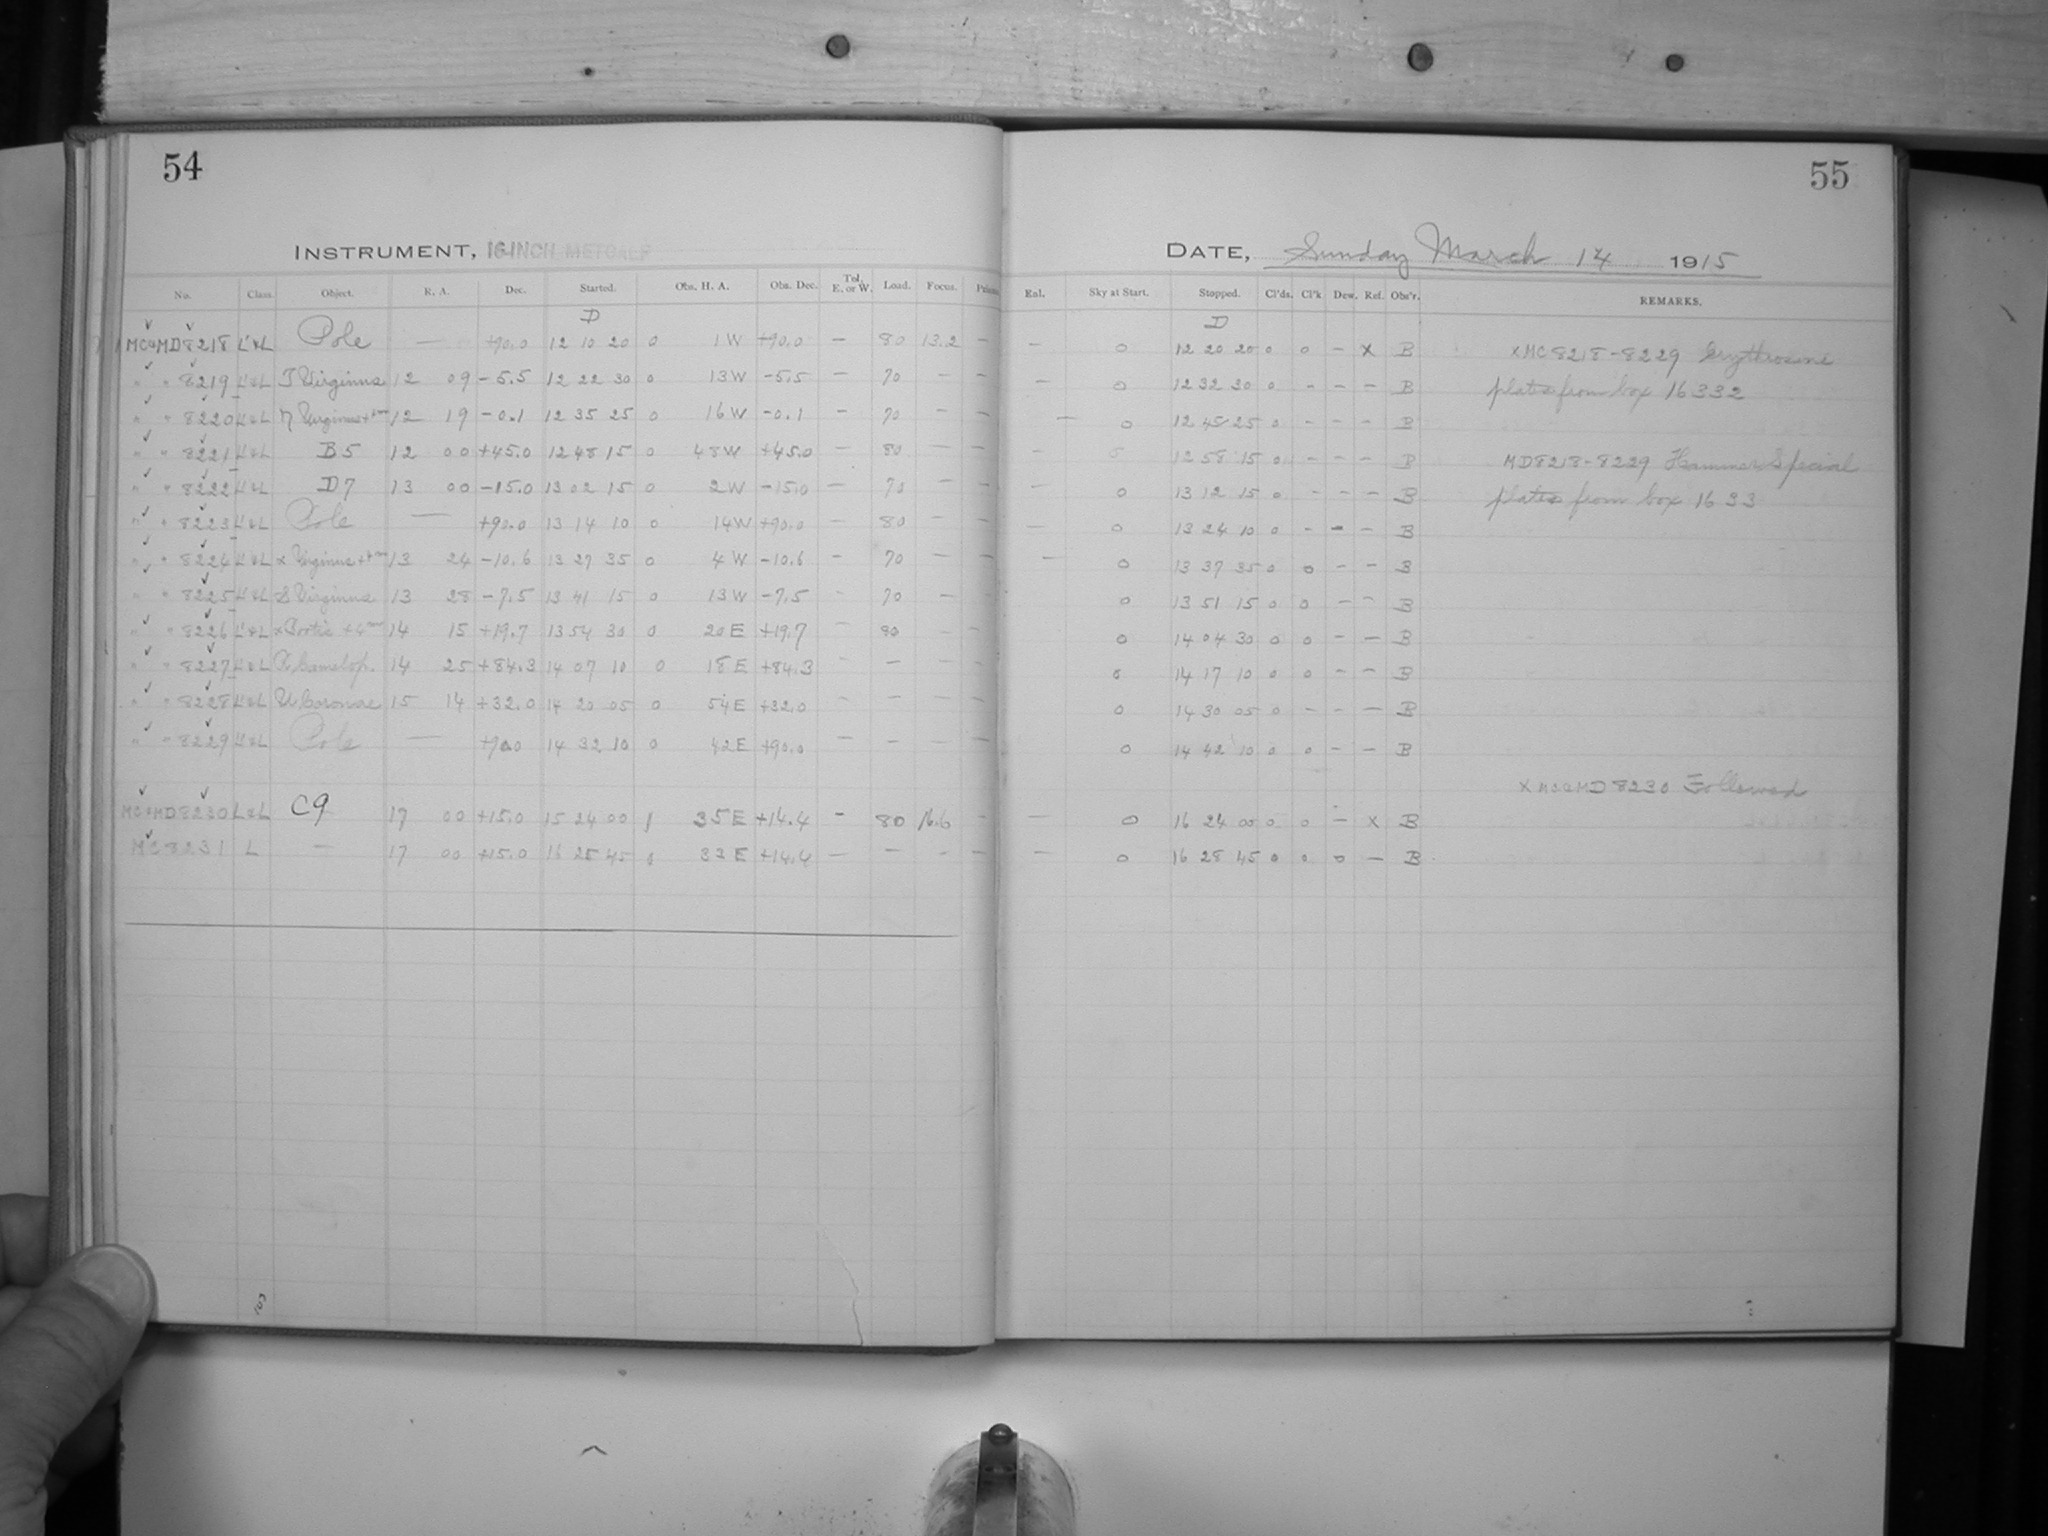 54
INSTRUMENT, 16-INCH METCALF
No. Class. Object. R. A. Dec. Started. Obs. H. A. Obs. Dec. Tel. E. or W. Load. Focus.
D
MC&MD8218 L'&L Pole — +90.0 12 10 20 0 1 W +90.0 — 80 13.2 —
" " 8219 L'&L Virginus 12 09 -5.5 12 22 30 0 13 W -5.5 — 70 — —
" " 8220 L'&L η Virginus 12 19 -0.1 12 35 25 0 16 W -0.1 — 70 — —
" " 8221 L'&L B5 12 00 +45.0 12 48 15 0 48 W +45.0 — 80 — —
" " 8222 L'&L D7 13 00 -15.0 13 02 15 0 2 W -15.0 — 70 — —
" " 8223 L'&L Pole — +90.0 13 14 10 0 14 W +90.0 — 80 — —
" " 8224 L'&L Virginus 13 24 -10.6 13 27 35 0 4 W -10.6 — 70 — —
" " 8225 L'&L S Virginus 13 28 -7.5 13 41 15 0 13 W -7.5 — 70 — —
" " 8226 L'&L 14 15 +19.7 13 54 30 0 20 E +19.7 — 80 — —
" " 8227 L'&L R. Camelop. 14 25 +84.3 14 07 10 0 18 E +84.3 — — — —
" " 8228 L'&L U Coronae 15 14 +32.0 14 20 05 0 54 E +32.0 — — — —
" " 8229 L'&L Pole — +90.0 14 32 10 0 42 E +90.0 — — — —
MC&MD8230 L&L C9 17 00 +15.0 15 24 00 1 35 E +14.4 — 80 —
MC8231 L — 17 00 +15.0 16 25 45 0 33 E +14.4 — — — —
55
DATE, Sunday March 14 1915
Enl. Sky at Start. Stopped. Cl'ds. Cl'k Dew. Ref. Obs'r. REMARKS.
D
— 0 12 20 20 0 0 — X B xMC8218-8229 Erythrosine
— 0 12 32 30 0 — — — B plates from box 16332
— 0 12 45 25 0 — — — B
— 12 58 15 0 — — — B MD8218-8229 Hammer Special
— 0 13 12 15 0 — — — B plates from box 1633
— 0 13 24 10 0 — — — B
— 0 13 37 35 0 0 — — B
0 13 51 15 0 0 — — B
0 14 04 30 0 0 — — B
0 14 17 10 0 0 — — B
0 14 30 05 0 — — — B
0 14 42 10 0 0 — — B
x MC&MD8230 Followed
— 0 16 24 00 0 0 — X B
— 0 16 28 45 0 0 0 — B